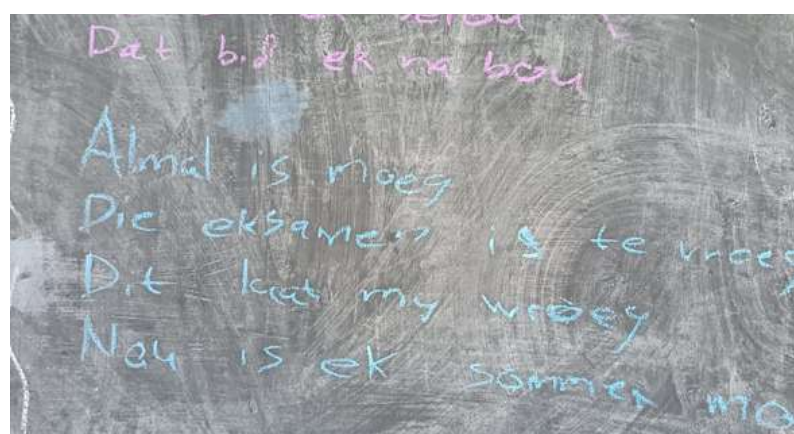 berou
Dat bid ek na bou
Almal is moeg
Die eksamen is te vroeg
Dit laat my wroeg
Nou is ek sommer